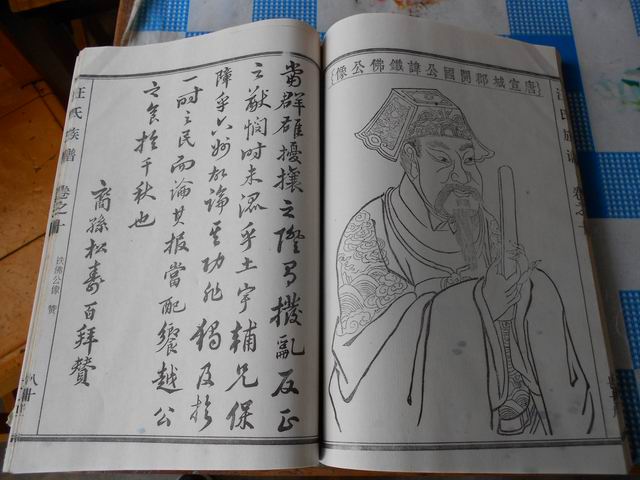 唐宣城郡開國公諱鐵佛公像
汪氏族譜
卷之
當群雄擾攘之際 撥亂反正
之猷憫時未混乎土宇輔兄保
障乎六州故論其功非獨及於
一時之民而論其報當配饗越公
之食於千秋也
裔孫松壽百拜贊
汪氏族譜
卷之
铁佛公像 赞
八十